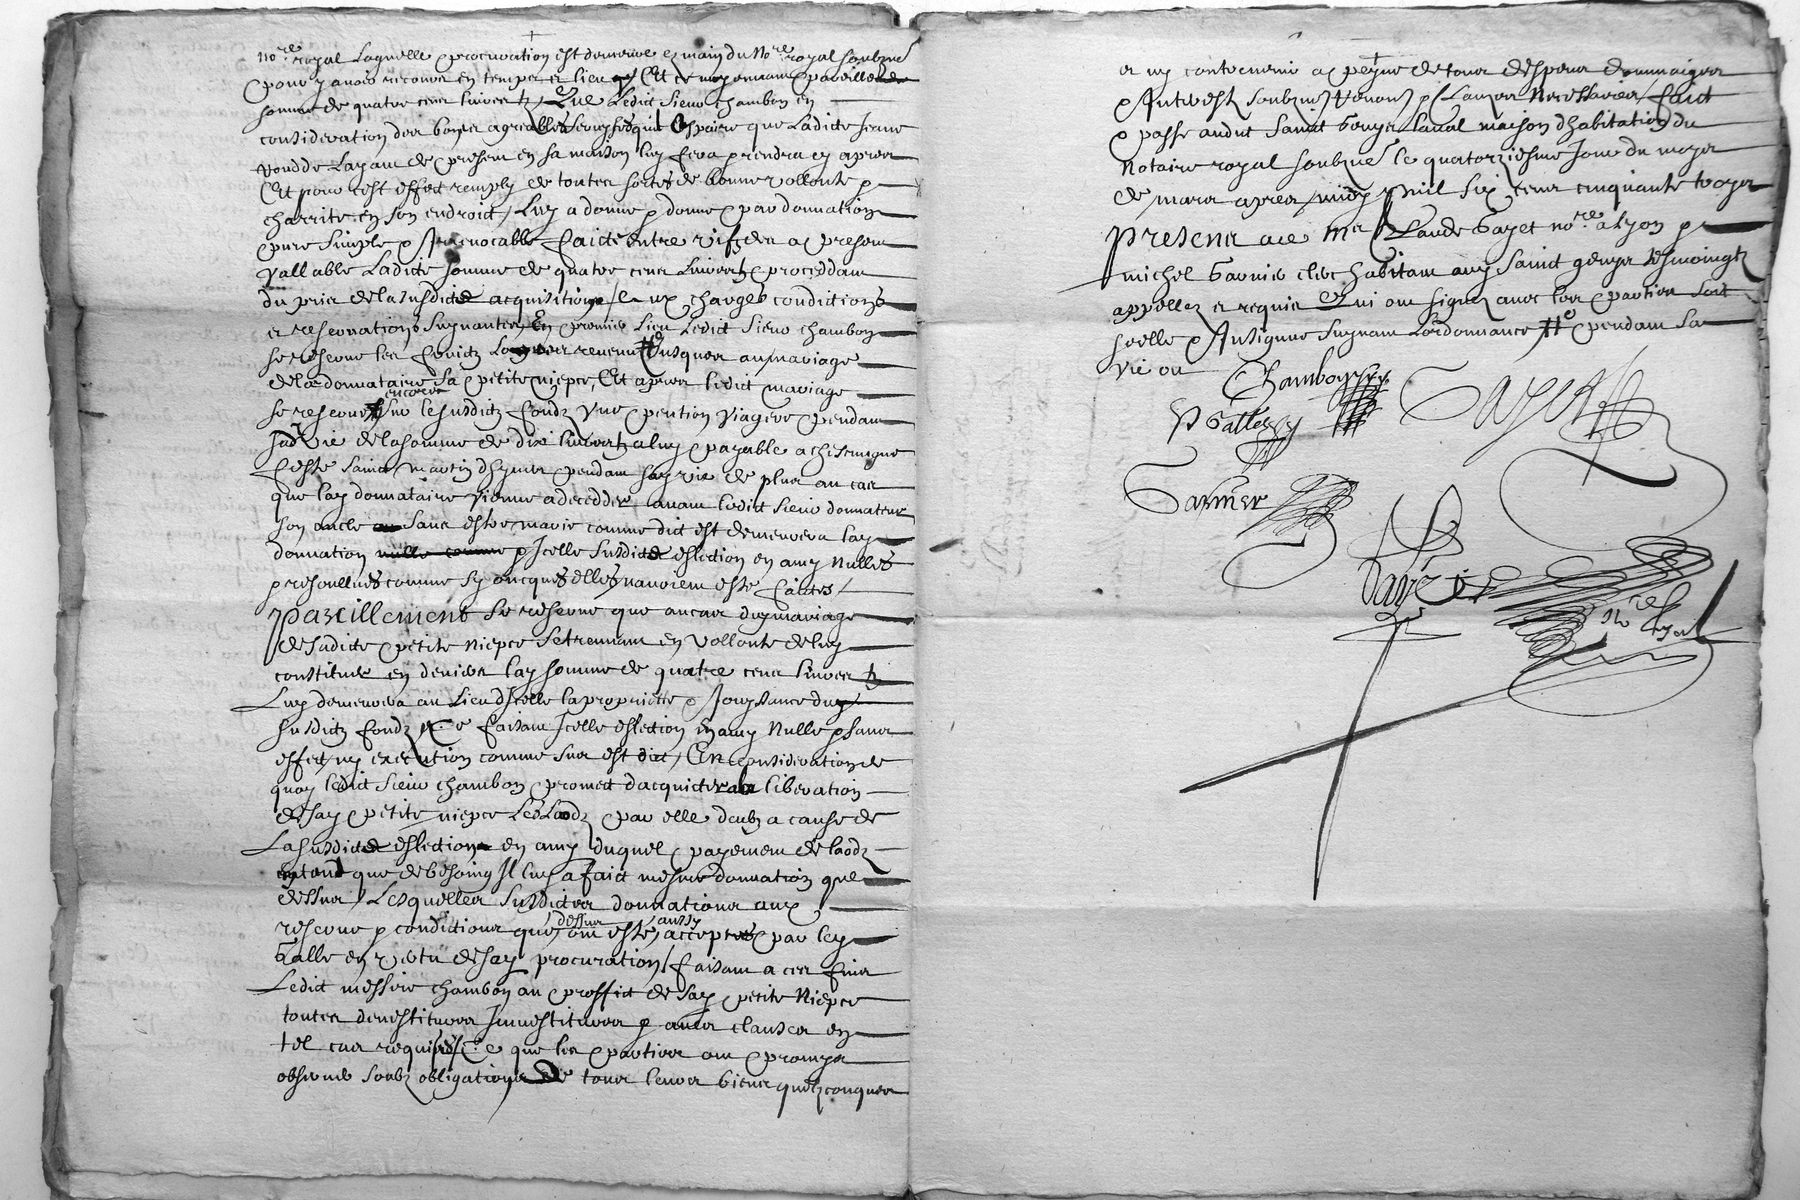 no.re royal laquelle procuration est demeuree en main du no.re royal soubzne
pour y avoir recours en temps et lieu Et ce moyennant pareille
somme de quatre cens livres tz Que ledict sieur chambon en
consideration des bons agreables services qu'il espaire que ladicte Jeane
de present en sa maison luy fera prendra cy apres
Et pour cest effect remply de toutes sortes de bonne vollonte et
charrite en son endroict luy a donne et donne par donnation
pure simple et Irrevocable faicte entre vifz des a present
vallable ladicte somme de quatre cens livres tz proceddant
du prix de la susdicte acquisition aux charges conditions
et reservations suyvantes En premier lieu ledict sieur chambon
se reserve les fruictz revenu # Jusques au mariage
de la donnataire sa petite niepce, Et apres ledict mariage
encores
se reserve sur lesusdictz fondz une pention viagere pendant
sad vie de la somme de dix livres tz a luy payable a chescune
feste sainct martin d'hyver pendant sa vie de plus au cas
que lad donnataire vienne a decedder avant ledict sieur donnateur
son oncle sans estre marie comme dict est demeurera lad
donnation nulle comme et Icelle susdicte eslection en amy nulles
et resoullues comme sy oncques elles n'avoient este faictes
Pareillement se reserve que au cas du mariage
de sadicte petite niepce se treuvant en vollonte de luy
constituer en deniers lad somme de quatre cens livres tz
luy demeurera au lieu d'Icelle la propriette et Jouyssance desd
susdictz fondz faisant Icelle eslection en amy nulle et sans
effect ny execution comme sus est dict, En consideration de
quoy ledict sieur chambon promect d'acquicter a la liberation
de sad petite niepce les laodz par elle deubz a cause de
la susdicte eslection en amy duquel payement de laodz
entant que de besoing Il luy a faict mesme donnation que
dessus Lesquelles susdictes donnations aux
dessus aussy
reserve et conditions que ont este acceptees par led
Galle en vertu de sad procuration faisant a ces fins
Ledict messire chambon au proffict de sad petite niepce
toutes devestitures Investitures et aultres clauses en
tel cas requises Ce que les parties ont promys
observer soubz obligation de tous leurs biens quelzconques
et ny contrevenir a peyne de tous despens dommaiges
et Interestz soubzmis renons et clauses necessaires faict
et passe audict sainct genys laval maison d'habitation du
notaire royal soubzne le quatorziesme Jour du moys
de mars apres midy mil six cens cinquante troys
Presens ace m.re Claude Gayet no.re a lyon et
michel Garnier clerc habitant aud sainct genys tesmoingtz
appellez et requis Qui ont signez avec les parties soit
scelle et Insignue suyvant l'ordonnance # pendant sa
vie ou
Chambon
Galle
Gayet
Garnier
n.re royal